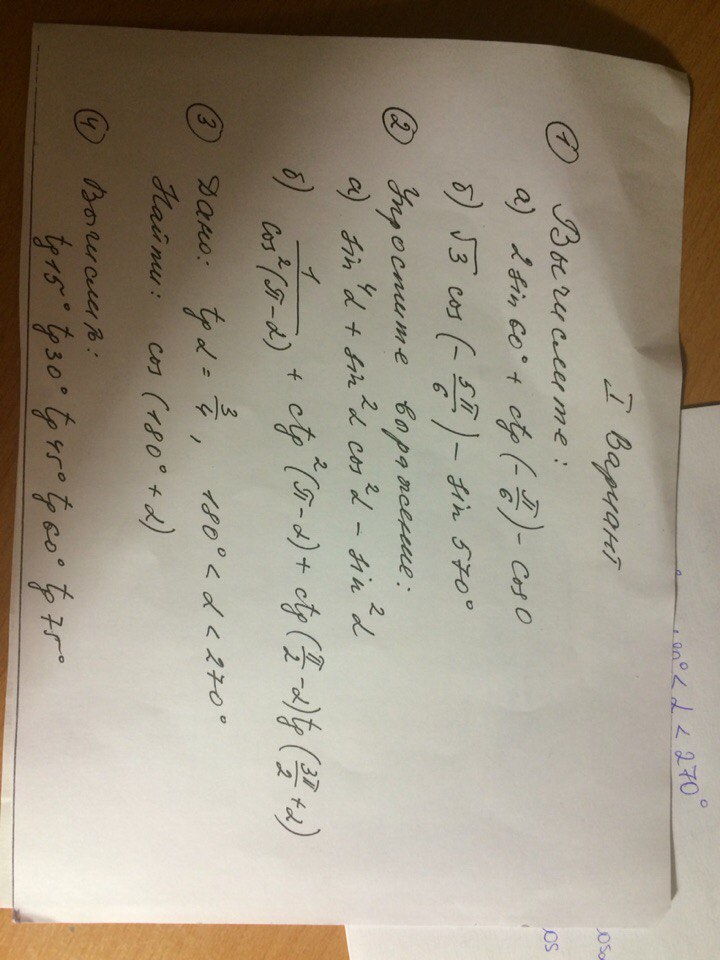 I Вариант
① Вычислите:
а) 2 sin 60° + ctg (-π/6) - cos 0
б) √3 cos (-5π/6) - sin 570°
② Упростите воряжение:
а) sin⁴α + sin²α cos²α - sin²α
б) 1/cos²(π-α) + ctg²(π-α) + ctg (π/2 - α) tg (3π/2 + α)
③ Дано: tg α = 3/4, 180° < α < 270°
Найти: cos (180° + α)
④ Вычислить:
tg 15° tg 30° tg 45° tg 60° tg 75°
< α < 270°